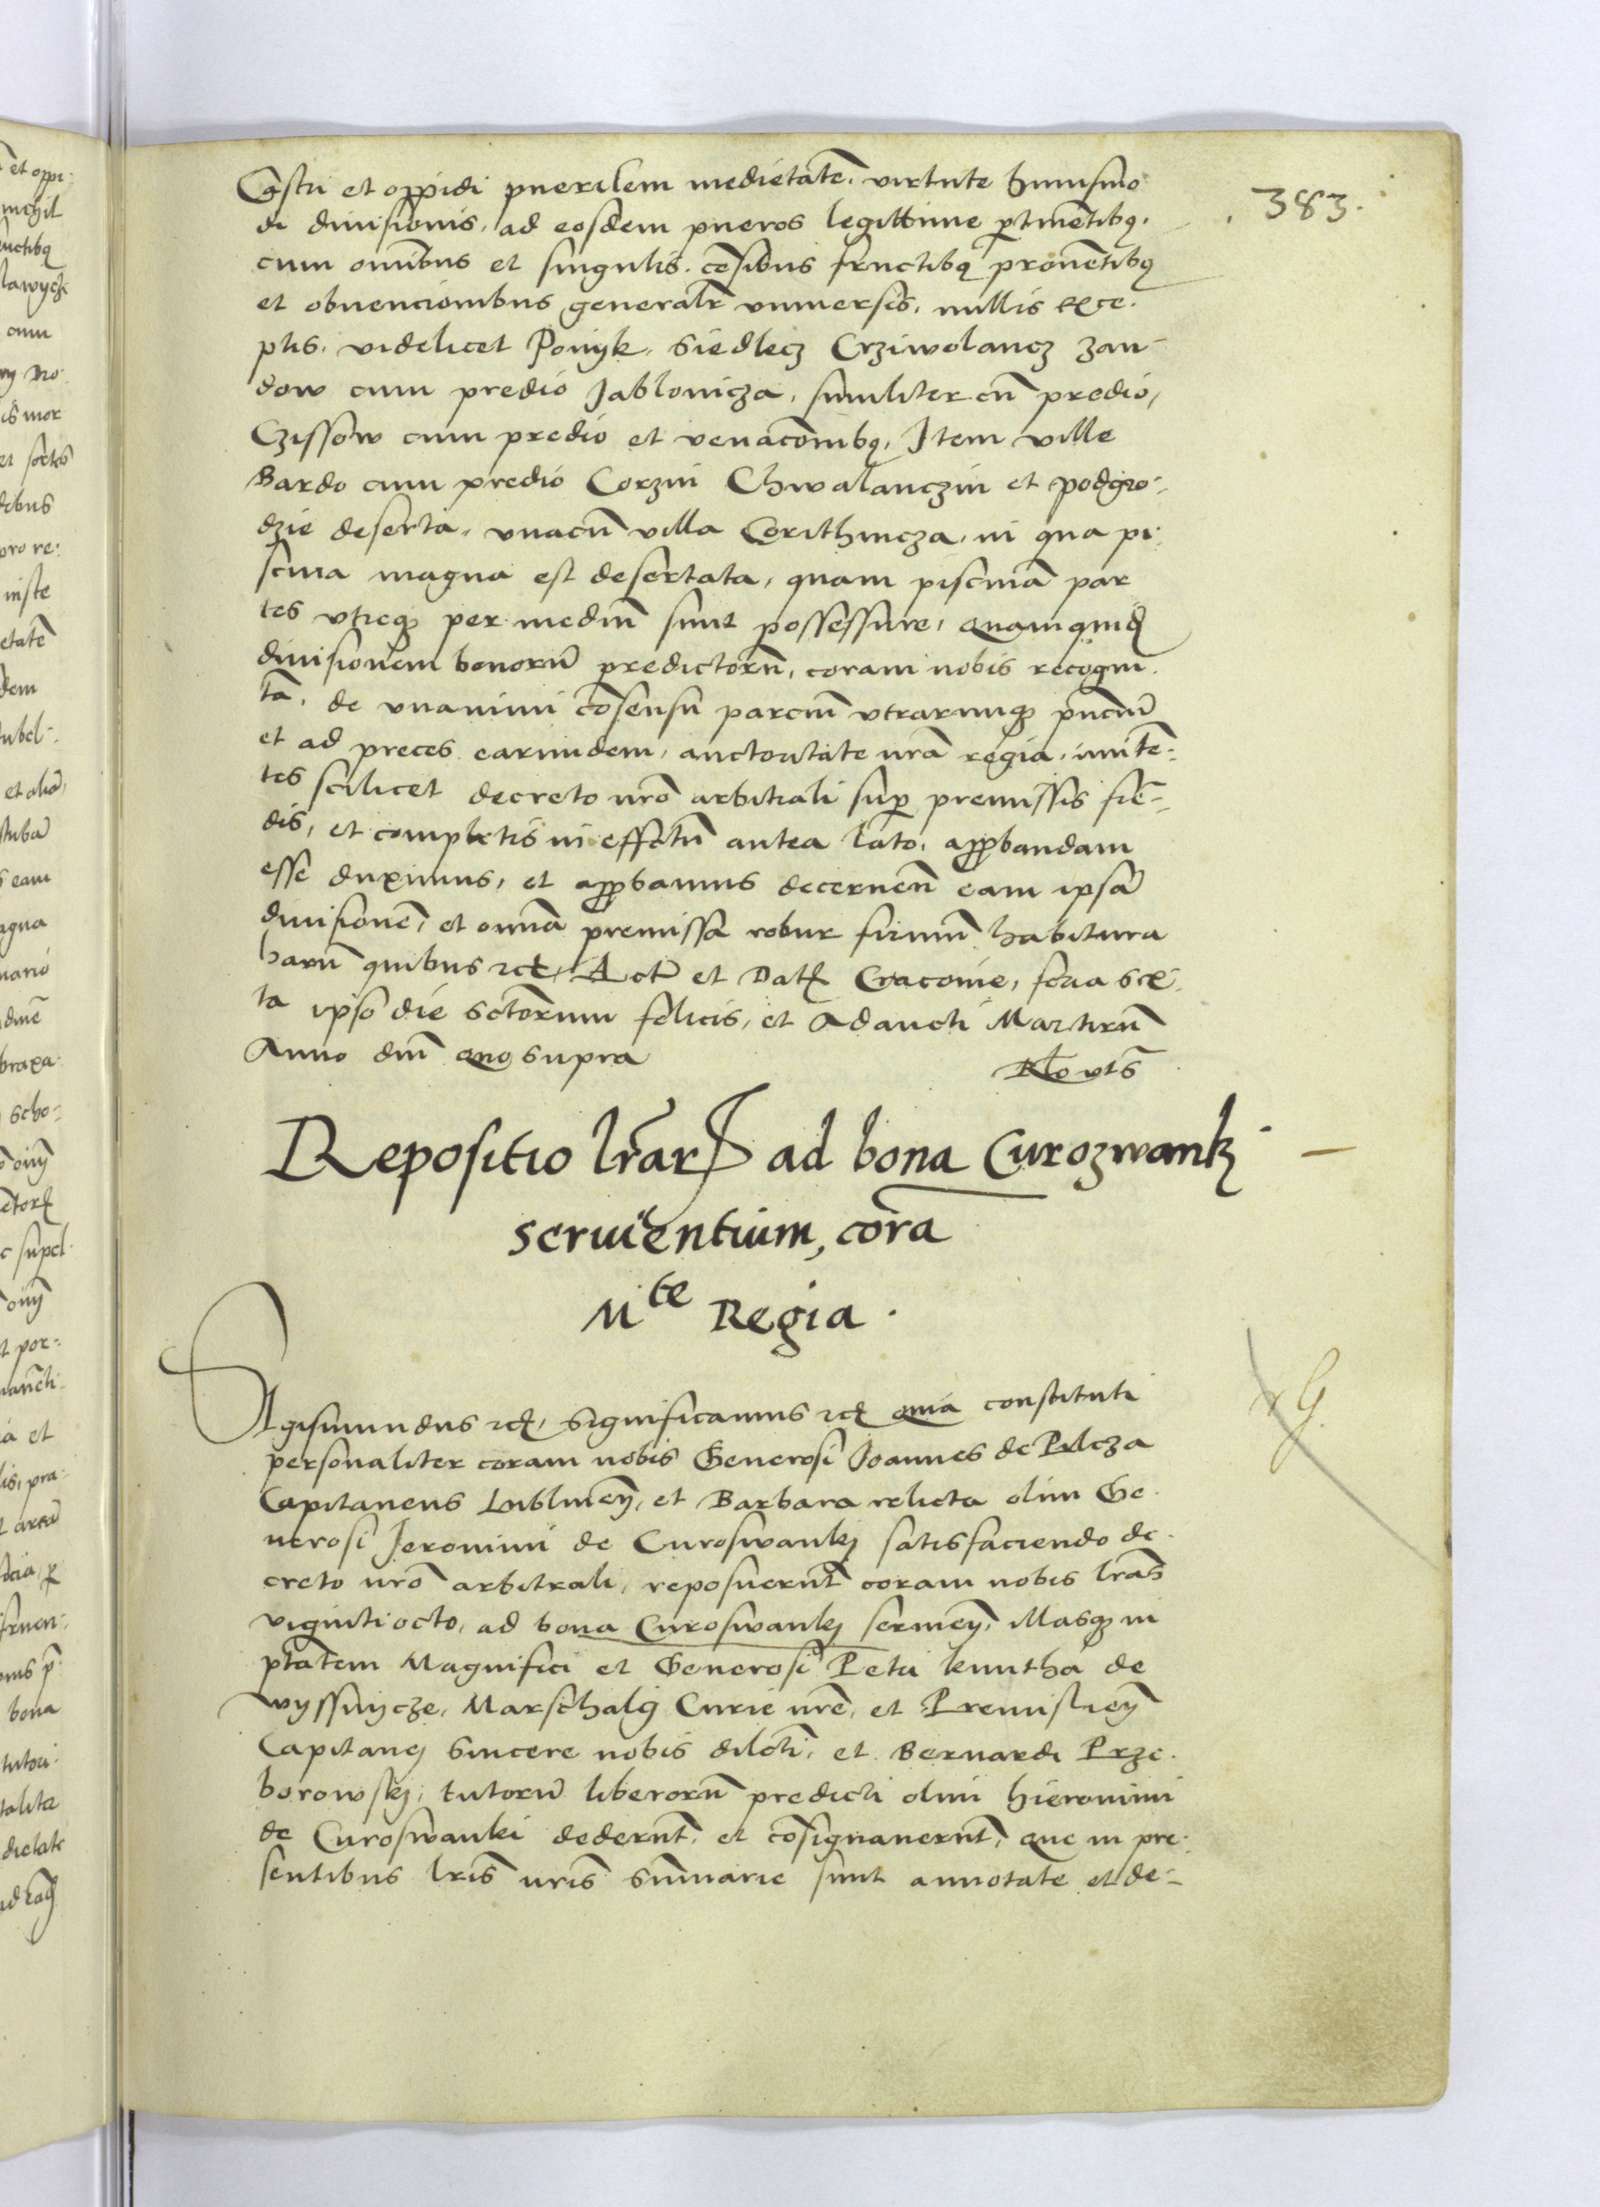 383.
Castri et oppidi puerilem medietatē. virtute huiusmo
di diuisionis, ad eosdem pueros legittime ꝑtinētibꝯ.
cum omnibus et singulis. cēsibus fructibꝯ prouētibꝯ
et obuencionibus generalr̄ vniuersis, nullis exce.
ptis. videlicet Ponyk, Siedlecz Crziwolancz zan-
dow cum predio Jablonicza, similiter cū predio,
Czissow cum predio et venacōnibꝯ, Item ville
Bardo cum predio Corzin Chwalanczin et podgro-
dzie deserta, vnacū villa Corithnicza, in qua pi-
scina magna est desertata, quam piscinā par
tes vtręqꝫ per mediū sunt possessure, Quamquidē
diuisionem bonorū predictorū, coram nobis recogni
tā, de vnanimi cōsensu parciū vtrarumqꝫ pn̄ciū
et ad preces earundem, auctoritate nrā regia, inniтē-
tes scilicet decreto nrō arbitrali suꝑ premissis fiē-
dis, et completis in effectū antea lato, approbandam
esse duximus, et approbamus decernēn eam ipsā
diuisionē, et omnia premissa robur firmū habitura
harū quibus etc, Actū et Datū Cracouie, feria sex
ta ipso die sctōrum felicis, et Adaucti Martirū
Anno dnī quo supra
Rlo vts
Repositio lrār ad bona Curozwankj
seruientium, corā
Mte Regia.
Sigismundus etc, Significamus etc quia constituti
personaliter coram nobis Generosi Joannes de Pilcza
Capitaneus Lublineñ, et Barbara relicta olim Ge
nerosi Jeronimi de Curoswankj satisfaciendo de
creto nrō arbitrali, reposuerūt coram nobis lrās
vigintiocto, ad bona Curoswankj seruieñ, Illasqꝫ in
ptātem Magnifici et Generosi Petri kmitha de
wyssnycze, Marschalci Curie nrē, et Premislieñ
Capitanej sincere nobis dilcti, et Bernardi Prze
borowskj, tutorū liberorū predicti olim Hieronimi
de Curoswanki dederūt, et cōsignauerūt, que in pre
sentibus lris nris summarie sunt annotate et de-